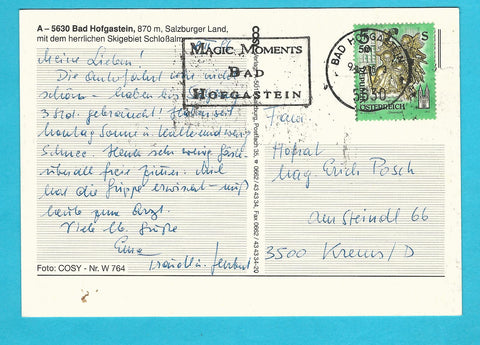 A – 5630 Bad Hofgastein, 870 m, Salzburger Land,
mit dem herrlichen Skigebiet Schloßalm
MAGIC MOMENTS
BAD
HOFGASTEIN
BAD HOFGASTEIN
5630
S
ÖSTERREICH
Meine Lieben!
Die Autofahrt war nicht
schön – haben bis
3 Std. gebraucht! Haben seit
Montag Sonne u. Kälte und wenig
Schnee. Heute sehr wenig Gäste
überall freie Zimmer.
hat die Grippe erwischt – muß
heute zum Arzt.
Viele lb. Grüße
Erna
Foto: COSY - Nr. W 764
Salzburg, Postfach 35, ☎ 0662/43 43 34, Fax 0662/43 43 34-20
Hofrat
Mag. Erich Posch
Am Steindl 66
3500 Krems/D